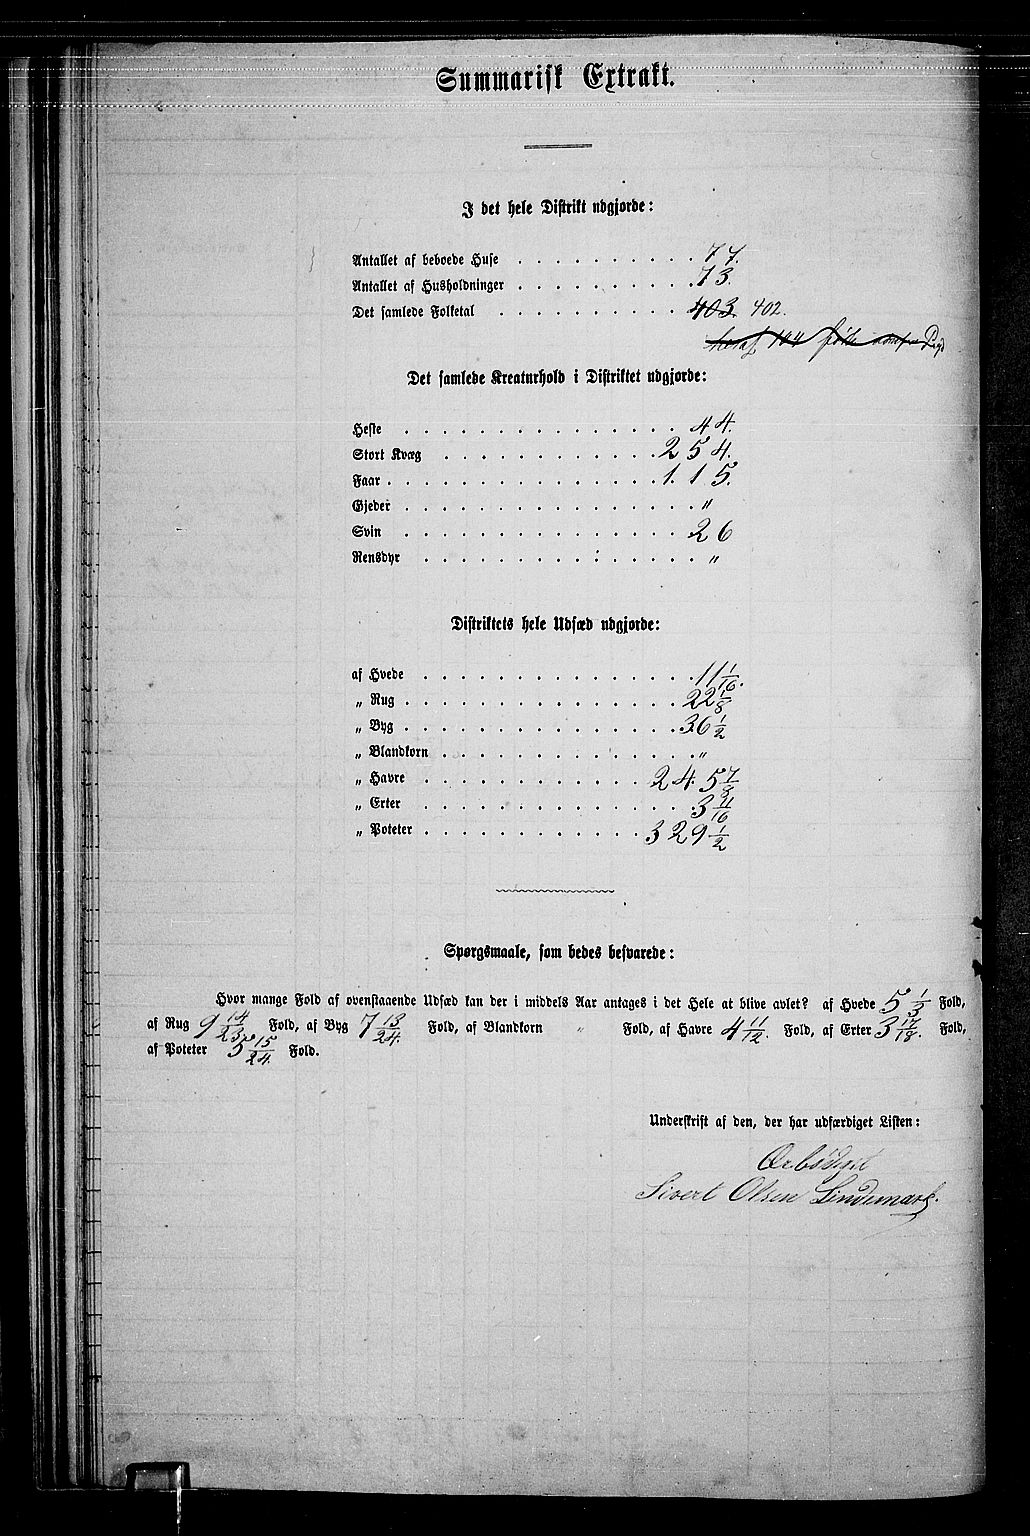 Summarisk Extrakt.
I det hele Distrikt udgjorde:
Antallet af beboede Huse . . . . . . . . . . 77.
Antallet af Husholdninger . . . . . . . . . . 73.
Det samlede Folketal . . . . . . . . . . . 403. 402.
Det samlede Kreaturhold i Distriktet udgjorde:
Heste . . . . . . . . . . . . . . . 44.
Stort Kvæg . . . . . . . . . . . . 254.
Faar . . . . . . . . . . . . . . . 115.
Gjeder . . . . . . . . . . . . . . . . "
Svin . . . . . . . . . . . . . . . 26
Rensdyr . . . . . . . . . . . . . . . "
Distriktets hele Udsæd udgjorde:
af Hvede . . . . . . . . . . . . . . . 11 1/16.
„ Rug . . . . . . . . . . . . . . . 22 1/8
„ Byg . . . . . . . . . . . . . . . 36 1/2
„ Blandkorn . . . . . . . . . . . . . . "
„ Havre . . . . . . . . . . . . 245 7/8
„ Erter . . . . . . . . . . . . . . . 3 11/16
„ Poteter . . . . . . . . . . . . 329 1/2
Spørgsmaale, som bedes besvarede:
Hvor mange Fold af ovenstaaende Udsæd kan der i middels Aar antages i det Hele at blive avlet? af Hvede 5 1/3 Fold,
af Rug 9 14/23 Fold, af Byg 7 13/24. Fold, af Blandkorn " Fold, af Havre 4 11/12. Fold, af Erter 3 17/18. Fold,
af Poteter 5 15/24. Fold.
Underskrift af den, der har udfærdiget Listen:
Ærbødigst
Sivert Olsen Lindemark.